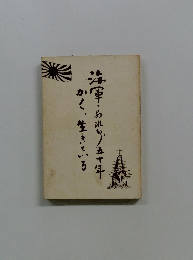 海軍・あれから五十年
かく、生きている